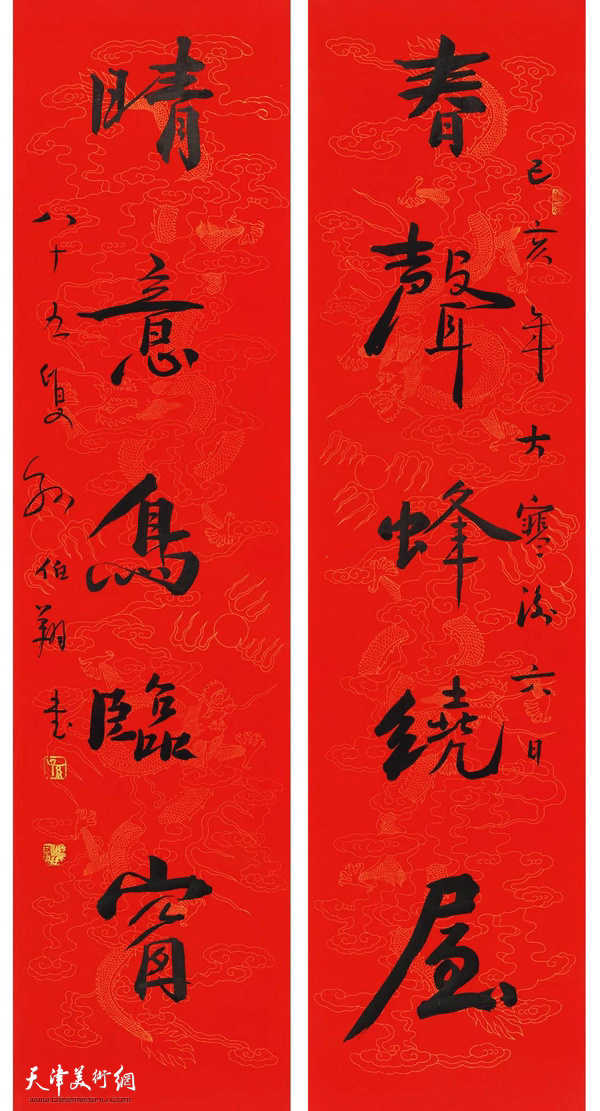 己亥年大寒後六日
春聲蜂繞屋
晴意鳥臨窗
八十五叟孫伯翔書
天津美術網